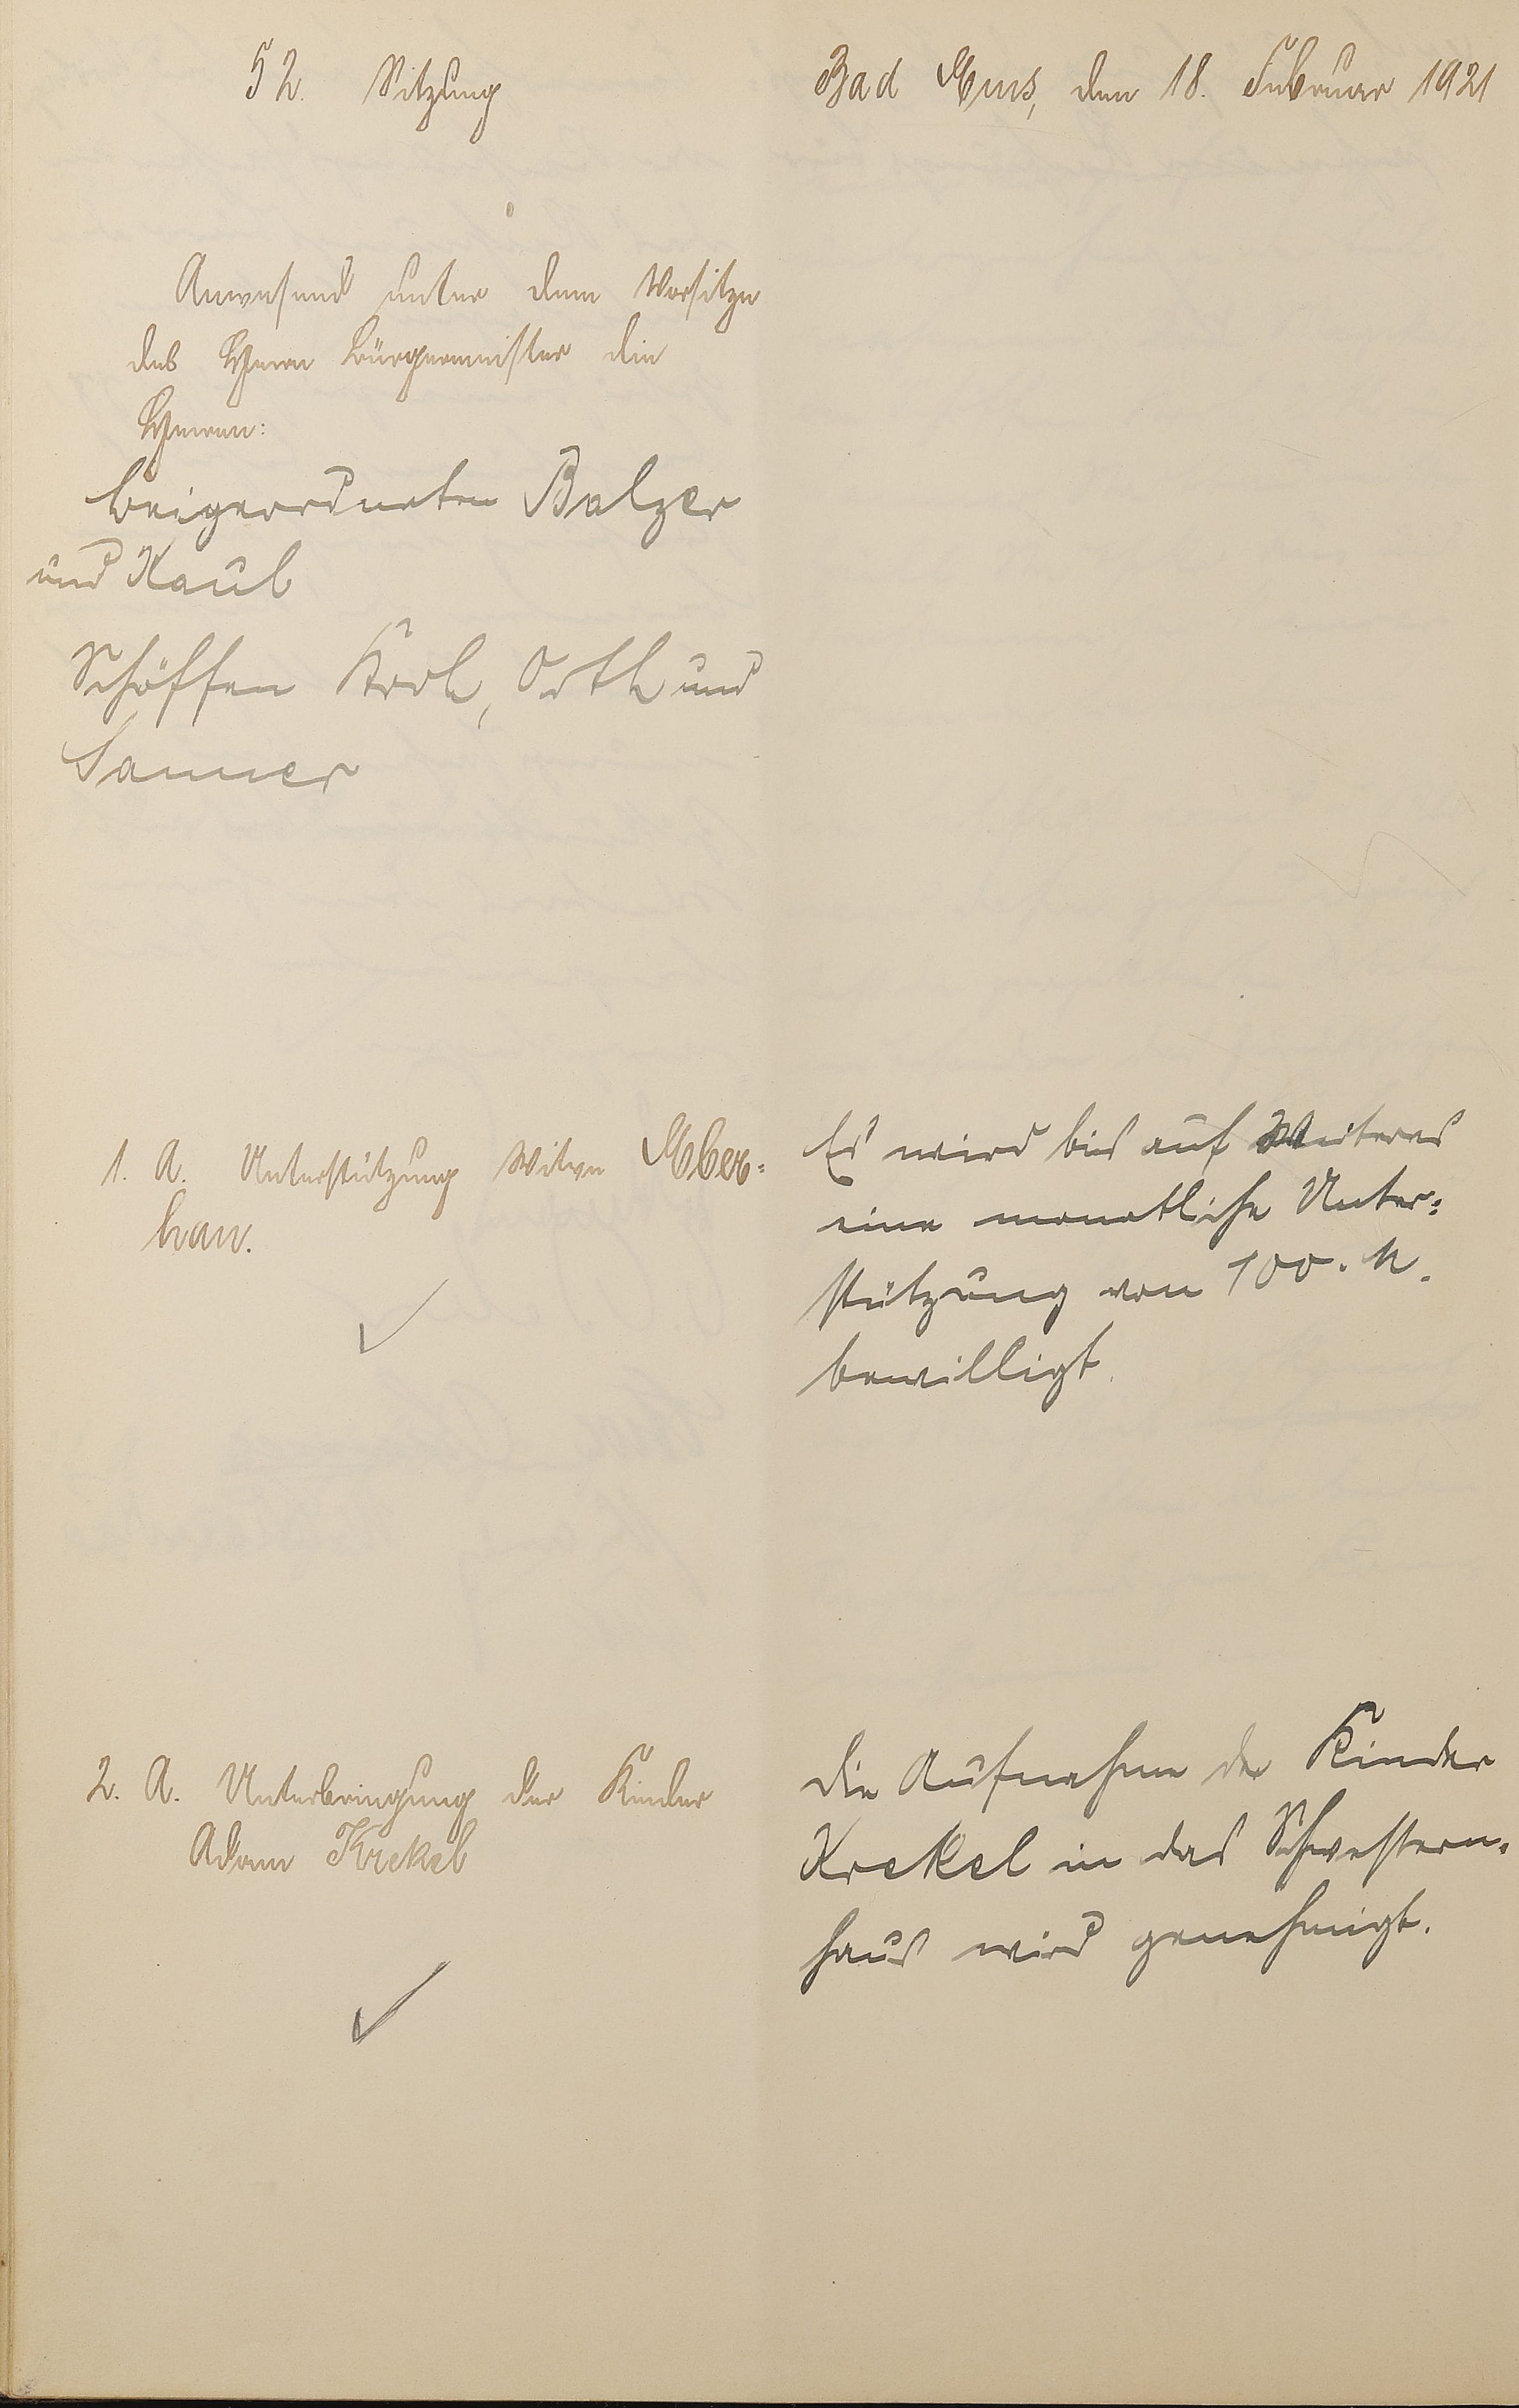 52. Sitzung
Bad Ems, den 18. Februar 1921
Anwesend unter dem Vorsitze
des Herrn Bürgermeister die
Herren:
Beigeordneten Balzer
und Kaul
Schöffen Kroh, Orth und
Sanner
1. A. Unterstützung Witwe Eber=
han.
Es wird bis auf Weiteres
eine monatliche Unter=
stützung von 100. M.
bewilligt.
2. A. Unterbringung der Kinder
Adam Krekel
Die Aufnahme der Kinder
Krekel in das Schwestern-
haus wird genehmigt.